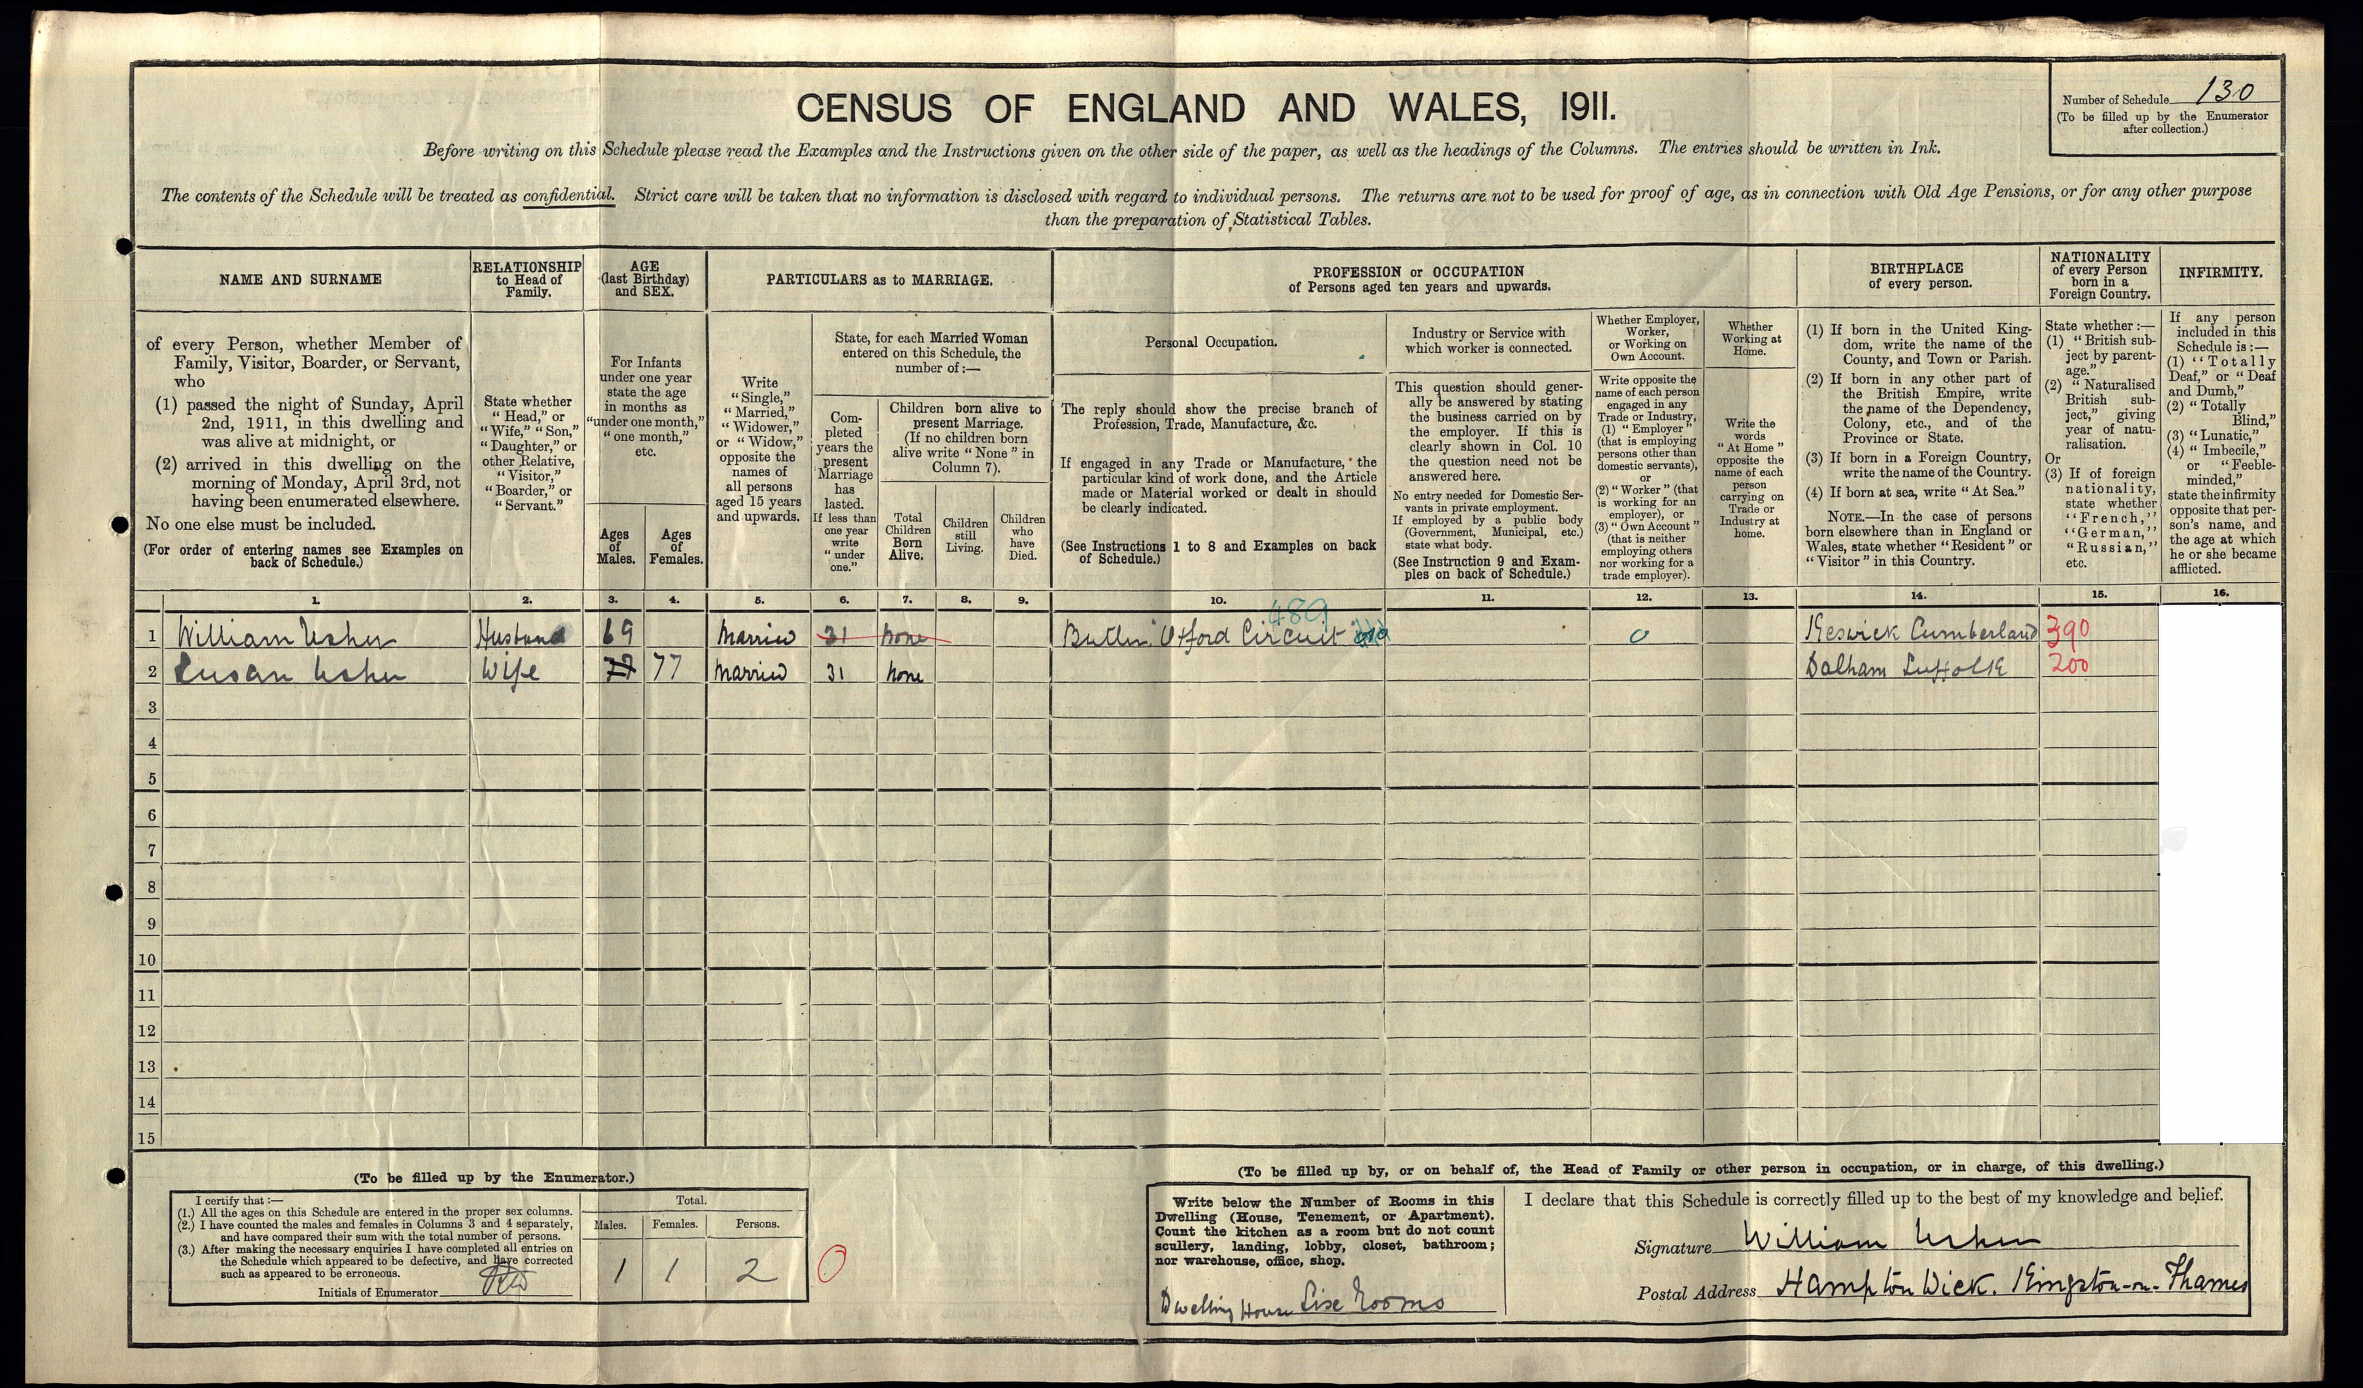 CENSUS OF ENGLAND AND WALES, 1911.
Number of Schedule 130
(To be filled up by the Enumerator
after collection.)
Before writing on this Schedule please read the Examples and the Instructions given on the other side of the paper, as well as the headings of the Columns. The entries should be written in Ink.
The contents of the Schedule will be treated as confidential. Strict care will be taken that no information is disclosed with regard to individual persons. The returns are not to be used for proof of age, as in connection with Old Age Pensions, or for any other purpose
than the preparation of Statistical Tables.
NAME AND SURNAME
of every Person, whether Member of
Family, Visitor, Boarder, or Servant,
who
(1) passed the night of Sunday, April
2nd, 1911, in this dwelling and
was alive at midnight, or
(2) arrived in this dwelling on the
morning of Monday, April 3rd, not
having been enumerated elsewhere.
No one else must be included.
(For order of entering names see Examples on
back of Schedule.)
RELATIONSHIP
to Head of
Family.
State whether
"Head," or
"Wife," "Son,"
"Daughter," or
other Relative,
"Visitor,"
"Boarder," or
"Servant."
AGE
(last Birthday)
and SEX.
For Infants
under one year
state the age
in months as
"under one month,"
"one month,"
etc.
Ages
of
Males.
Ages
of
Females.
PARTICULARS as to MARRIAGE.
Write
"Single,"
"Married,"
"Widower,"
or "Widow,"
opposite the
names of
all persons
aged 15 years
and upwards.
State, for each Married Woman
entered on this Schedule, the
number of:—
Com-
pleted
years the
present
Marriage
has
lasted.
If less than
one year
write
"under
one."
Children born alive to
present Marriage.
(If no children born
alive write "None" in
Column 7).
Total
Children
Born
Alive.
Children
still
Living.
Children
who
have
Died.
PROFESSION or OCCUPATION
of Persons aged ten years and upwards.
Personal Occupation.
The reply should show the precise branch of
Profession, Trade, Manufacture, &c.
If engaged in any Trade or Manufacture, the
particular kind of work done, and the Article
made or Material worked or dealt in should
be clearly indicated.
(See Instructions 1 to 8 and Examples on back
of Schedule.)
Industry or Service with
which worker is connected.
This question should gener-
ally be answered by stating
the business carried on by
the employer. If this is
clearly shown in Col. 10
the question need not be
answered here.
No entry needed for Domestic Ser-
vants in private employment.
If employed by a public body
(Government, Municipal, etc.)
state what body.
(See Instruction 9 and Exam-
ples on back of Schedule.)
Whether Employer,
Worker,
or Working on
Own Account.
Write opposite the
name of each person
engaged in any
Trade or Industry,
(1) "Employer"
(that is employing
persons other than
domestic servants),
or
(2) "Worker" (that
is working for an
employer), or
(3) "Own Account"
(that is neither
employing others
nor working for a
trade employer).
Whether
Working at
Home.
Write the
words
"At Home"
opposite the
name of each
person
carrying on
Trade or
Industry at
home.
BIRTHPLACE
of every person.
(1) If born in the United King-
dom, write the name of the
County, and Town or Parish.
(2) If born in any other part of
the British Empire, write
the name of the Dependency,
Colony, etc., and of the
Province or State.
(3) If born in a Foreign Country,
write the name of the Country.
(4) If born at sea, write "At Sea."
NOTE.—In the case of persons
born elsewhere than in England or
Wales, state whether "Resident" or
"Visitor" in this Country.
NATIONALITY
of every Person
born in a
Foreign Country.
State whether:—
(1) "British sub-
ject by parent-
age."
(2) "Naturalised
British sub-
ject," giving
year of natu-
ralisation.
Or
(3) If of foreign
nationality,
state whether
"French,"
"German,"
"Russian,"
etc.
INFIRMITY.
If any person
included in this
Schedule is:—
(1) "Totally
Deaf," or "Deaf
and Dumb,"
(2) "Totally
Blind,"
(3) "Lunatic,"
(4) "Imbecile,"
or "Feeble-
minded,"
state the infirmity
opposite that per-
son's name, and
the age at which
he or she became
afflicted.
1. 2. 3. 4. 5. 6. 7. 8. 9. 10. 11. 12. 13. 14. 15. 16.
489
1 William Usher Husband 69 Married 31 none Butler "Oxford Circuit" 0 Keswick Cumberland 390
2 Susan Usher Wife 77 77 Married 31 none Dalham Suffolk 200
3
4
5
6
7
8
9
10
11
12
13
14
15
(To be filled up by the Enumerator.)
I certify that:—
(1.) All the ages on this Schedule are entered in the proper sex columns.
(2.) I have counted the males and females in Columns 3 and 4 separately,
and have compared their sum with the total number of persons.
(3.) After making the necessary enquiries I have completed all entries on
the Schedule which appeared to be defective, and have corrected
such as appeared to be erroneous.
Initials of Enumerator
Total.
Males. Females. Persons.
1 1 2 0
(To be filled up by, or on behalf of, the Head of Family or other person in occupation, or in charge, of this dwelling.)
Write below the Number of Rooms in this
Dwelling (House, Tenement, or Apartment).
Count the kitchen as a room but do not count
scullery, landing, lobby, closet, bathroom;
nor warehouse, office, shop.
Dwelling House Six Rooms
I declare that this Schedule is correctly filled up to the best of my knowledge and belief.
Signature William Usher
Postal Address Hampton Wick. Kingston-on-Thames